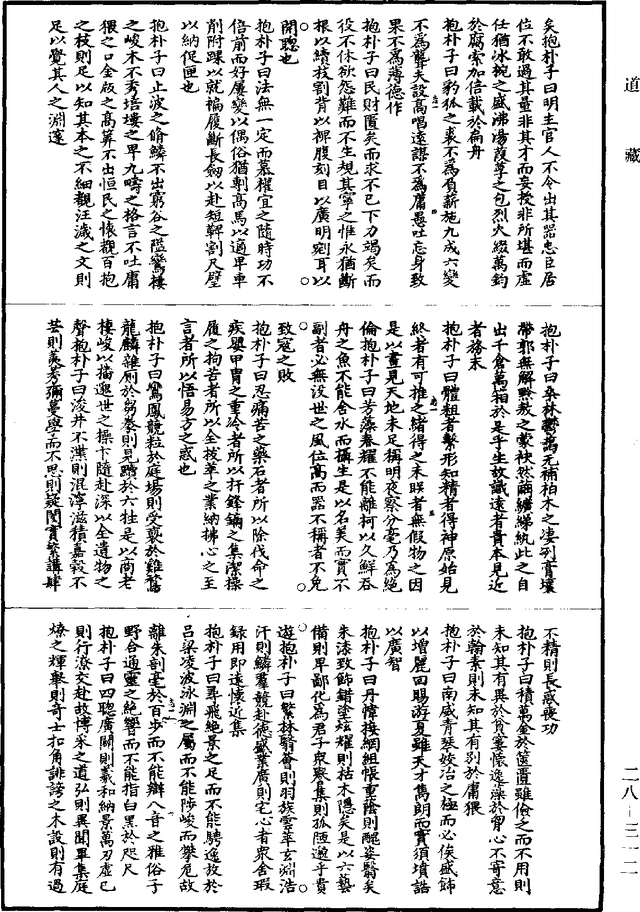 道藏
矣抱朴子曰明主官人不令出其器忠臣居
位不敢過其量非其才而妄授非所堪而虛
任猶冰椀之盛沸湯葭莩之包烈火綴萬鈞
於腐索加倍載於扁舟
抱朴子曰豹狐之裘不為負薪施九成六變
不為聾夫設高唱遠謨不為庸愚吐忘身致
果不為薄德作
抱朴子曰民財匱矣而求不已下力竭矣而
役不休欲怨難而不生規其寧之惟永猶斷
根以續枝割背以裨腹刻目以廣明剜耳以
開聰也
抱朴子曰法無一定而慕權宜之隨時功不
倍前而好屢變以偶俗猶剸高馬以適卑車
削附踝以就褊履斷長劍以赴短鞞割尺璧
以納促匣也
抱朴子曰止波之脩鱗不出窮谷之隘鸞棲
之峻木不秀培塿之卑九疇之格言不吐庸
猥之口金版之高筭不出恒民之懷觀百抱
之枝則足以知其本之不細觀汪濊之文則
足以覺其人之淵邃
抱朴子曰桑林鬱藹无補柏木之凄列膏壤
帶郭無解黔敖之蒙袂然繭纊綈紈此之自
出千倉萬箱於是乎生故識遠者貴本見近
者務末
抱朴子曰體粗者繫形知精者得神原始見
終者有可推之緒得之未眹者無假物之因
是以晝見天地未足稱明夜察分毫乃為絕
倫抱朴子曰芳藻春耀不能離柯以久鮮吞
舟之魚不能舍水而攝生是以名美而實不
副者必無沒世之風位高而器不稱者不免
致寇之敗
抱朴子曰忍痛苦之藥石者所以除伐命之
疾嬰甲冑之重冷者所以扞鋒鏑之集潔操
履之拘苦者所以全拔萃之業納拂心之至
言者所以悟易方之惑也
抱朴子曰鸞鳳競粒於庭場則受褻於雞鶩
龍麟雜廁於芻豢則見黷於六牲是以商老
棲峻以播邈世之操卞隨赴深以全遺物之
聲抱朴子曰浚井不渫則泥濘滋積嘉穀不
芸則荑莠彌蔓學而不思則疑閡實繁講肆
不精則長惑喪功
抱朴子曰積萬金於篋匱雖儉之而不用則
未知其有異於貧窶懷逸藻於胷心不寄意
於翰素則未知其有別於庸猥
抱朴子曰南威青琴姣冶之極而必俟盛飾
以增麗回賜游夏雖天才雋朗而實須墳誥
以廣智
抱朴子曰丹幃接網組帳重蔭則醜姿翳矣
朱漆致飾錯塗炫耀則枯木隱矣是以六藝
備則卑鄙化為君子眾譽集則孤陋邈乎貴
遊抱朴子曰繁林翳薈則羽族雲萃玄淵浩
汗則鱗羣競赴德盛業廣則宅心者眾舍瑕
錄用即遠懷近集
抱朴子曰尋飛絕景之足而不能騁逸放於
呂梁凌波泳淵之屬而不能陟峻而攀危故
離朱剖毫於百步而不能辯八音之雅俗子
野合通靈之絕響而不能指白黑於咫尺
抱朴子曰四聰廣闢則羲和納景萬刃虛己
則行潦交赴故博采之道弘則異聞畢集庭
燎之輝舉則奇士扣角誹謗之木設則有過
二八—三一二